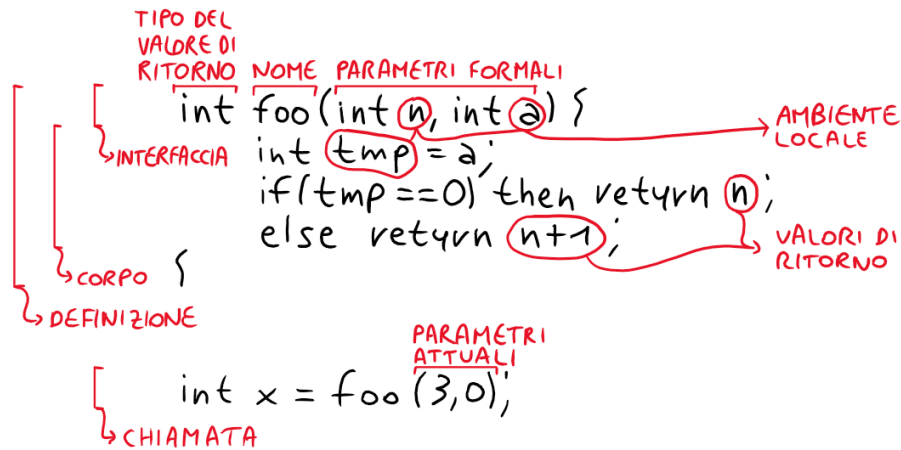 TIPO DEL
VALORE DI
RITORNO NOME PARAMETRI FORMALI
int foo(int n, int a) {
AMBIENTE
LOCALE
INTERFACCIA
int tmp = a;
if(tmp==0) then return n;
else return n+1;
VALORI DI
RITORNO
CORPO {
DEFINIZIONE
PARAMETRI
ATTUALI
int x = foo(3,0);
CHIAMATA